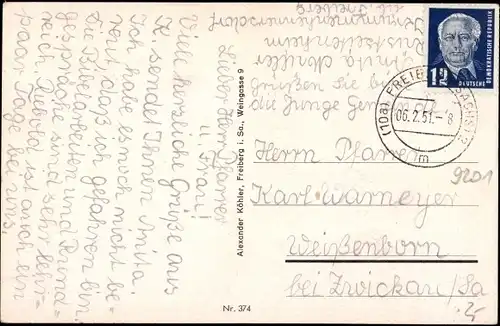 Lieber Herr Pfarrer
u. Frau!
Viele herzliche Grüße aus
K. sendet Ihnen Anita.
Ich habe es noch nicht be-
reut, daß ich gefahren bin.
Die Bibelarbeiten und Rund-
gespräche sind sehr lehr-
reich. Diebold ist auch ein
paar Tage bei uns.
grüßen Sie bitte
die Junge Gemeinde
Anita
Alexander Köhler, Freiberg i. Sa., Weingasse 9
Nr. 374
12
DEUTSCHE
DEMOKRATISCHE REPUBLIK
(10a) FREIBERG (SACHS)
06.2.51.-8
m
Herrn Pfarrer
Karl Warmeyer
Weißenborn
bei Zwickau/Sa
9201